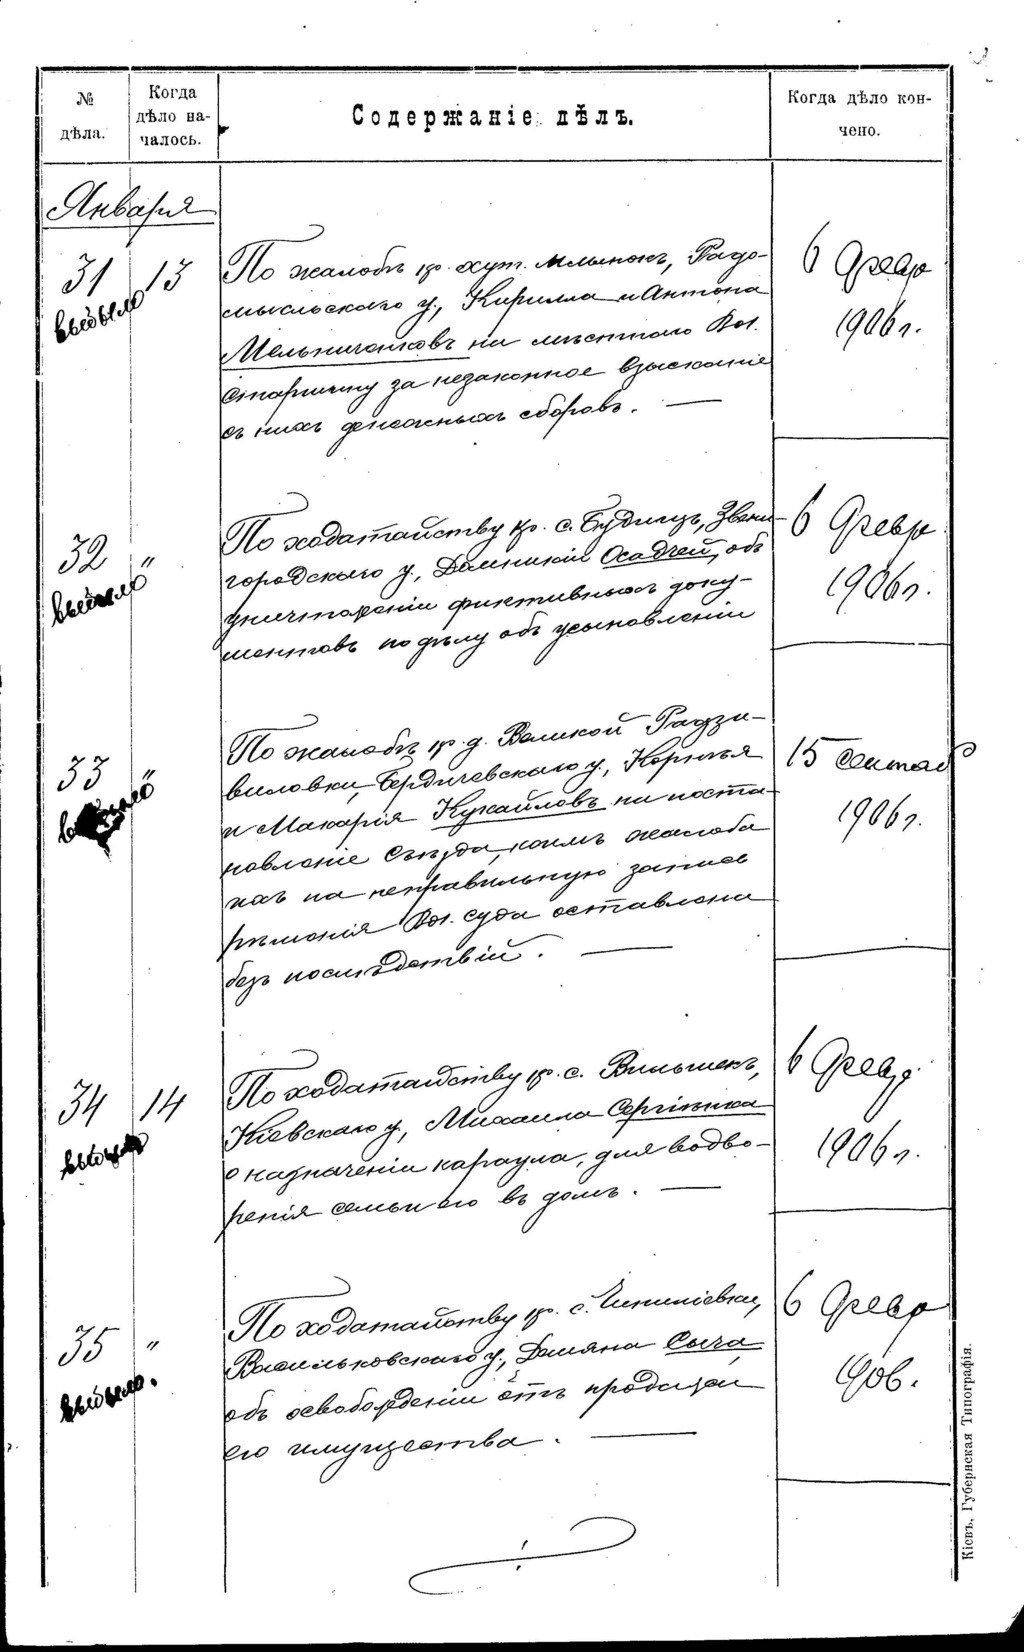 № дѣла.
Когда дѣло началось.
Содержаніе дѣлъ.
Когда дѣло кончено.
Января
31 13
выбыло
По жалобѣ кр. хут. Млынокъ, Радо-
мысльскаго у., Кирилла и Антона
Мельниченковъ на мѣстнаго Вол.
старшину за незаконное взысканіе
съ нихъ денежныхъ сборовъ. —
6 Февр
1906 г.
32 "
выбыло
По ходатайству кр. с. Будищъ, Звени-
городскаго у., Домникіи Осадчей, объ
уничтоженіи фиктивныхъ доку-
ментовъ по дѣлу объ усыновленіи
6 Февр
1906 г.
33 "
выбыло
По жалобѣ кр. д. Великой Радзи-
виловки, Бердичевскаго у., Корнѣя
и Макарія Кукайловъ на поста-
новленіе Съѣзда, коимъ жалоба
ихъ на неправильную запись
рѣшенія Вол. суда оставлена
безъ послѣдствій. —
15 Сентяб
1906 г.
34 14
выбыло
По ходатайству кр. с. Вильшекъ,
Кіевскаго у., Михаила Сергіенка
о назначеніи караула, для водво-
ренія семьи его въ домъ. —
6 Февр
1906 г.
35 "
выбыло.
По ходатайству кр. с.
Васильковскаго у., Даміана Сыча,
объ освобожденіи отъ продажи
его имущества. —
6 Февр
1906.
Кіевъ, Губернская Типографія.